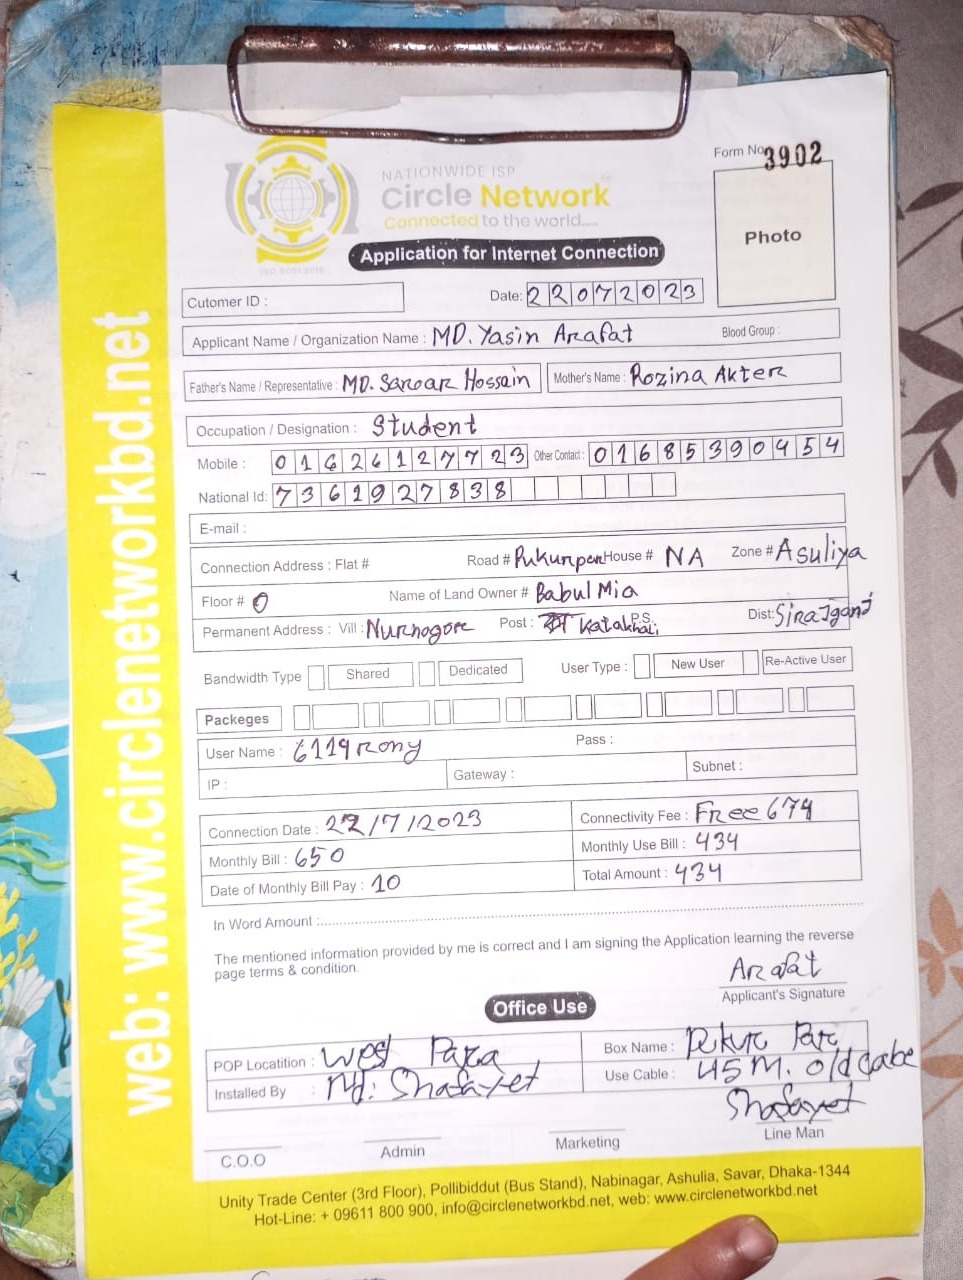 Form No 3902
NATIONWIDE ISP
Circle Network
Connected to the world.....
ISO 9001:2015
Photo
Application for Internet Connection
Cutomer ID :
Date: 22072023
Applicant Name / Organization Name : MD. Yasin Arafat Blood Group :
Father's Name / Representative : MD. Saroar Hossain Mother's Name : Rozina Akter
Occupation / Designation : Student
Mobile : 01626127723 Other Contact : 01685390454
National Id: 7361927838
E-mail :
Connection Address : Flat # Road # Pukurpar House # NA Zone # Asuliya
Floor # 0 Name of Land Owner # Babul Mia
Permanent Address : Vill : Nurnogore Post : Katakhali P.S. Dist: Sirajganj
Bandwidth Type Shared Dedicated User Type : New User Re-Active User
Packeges
User Name : 6119rony Pass :
IP : Gateway : Subnet :
Connection Date : 22/7/2023 Connectivity Fee : Free 674
Monthly Bill : 650 Monthly Use Bill : 434
Date of Monthly Bill Pay : 10 Total Amount : 434
In Word Amount :
The mentioned information provided by me is correct and I am signing the Application learning the reverse
page terms & condition.
Arafat
Applicant's Signature
Office Use
POP Locatition : West Para Box Name : Pukur Par
Installed By : Md: Shafayet Use Cable : 45M. old cable
Shafayet
C.O.O Admin Marketing Line Man
Unity Trade Center (3rd Floor), Pollibiddut (Bus Stand), Nabinagar, Ashulia, Savar, Dhaka-1344
Hot-Line: + 09611 800 900, info@circlenetworkbd.net, web: www.circlenetworkbd.net
web: www.circlenetworkbd.net